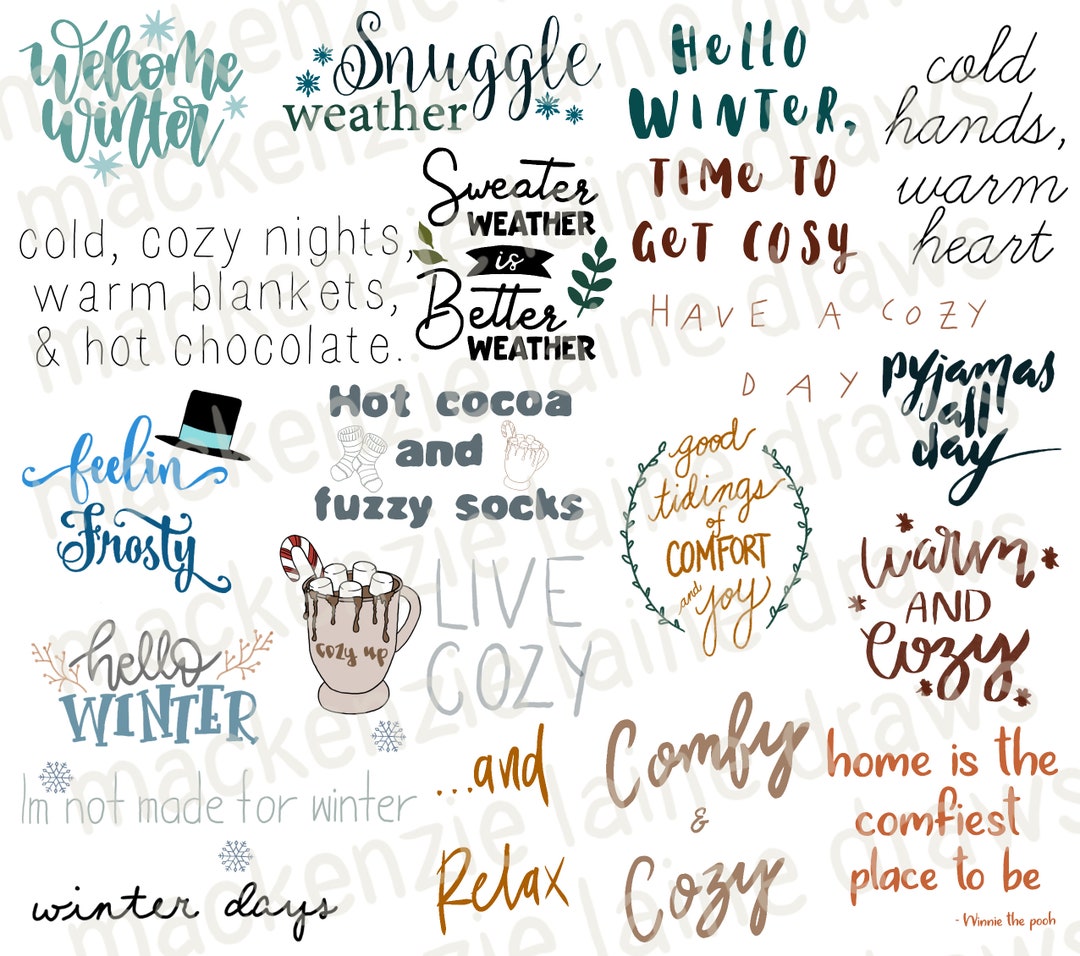 Welcome
winter
Snuggle
weather
Hello
WINTER,
TIME TO
GET COSY
cold
hands,
warm
heart
cold, cozy nights,
warm blankets,
& hot chocolate.
Sweater
WEATHER
is
Better
WEATHER
HAVE A COZY
DAY
pyjamas
all
day
feelin
Frosty
Hot cocoa
and
fuzzy socks
good
tidings
of
COMFORT
and joy
warm
AND
Cozy
cozy up
LIVE
COZY
hello
WINTER
Im not made for winter
winter days
...and
Relax
Comfy
&
Cozy
home is the
comfiest
place to be
- Winnie the pooh
mackenzie laine draws
mackenzie laine draws
mackenzie laine draws
mackenzie laine draws
mackenzie laine draws